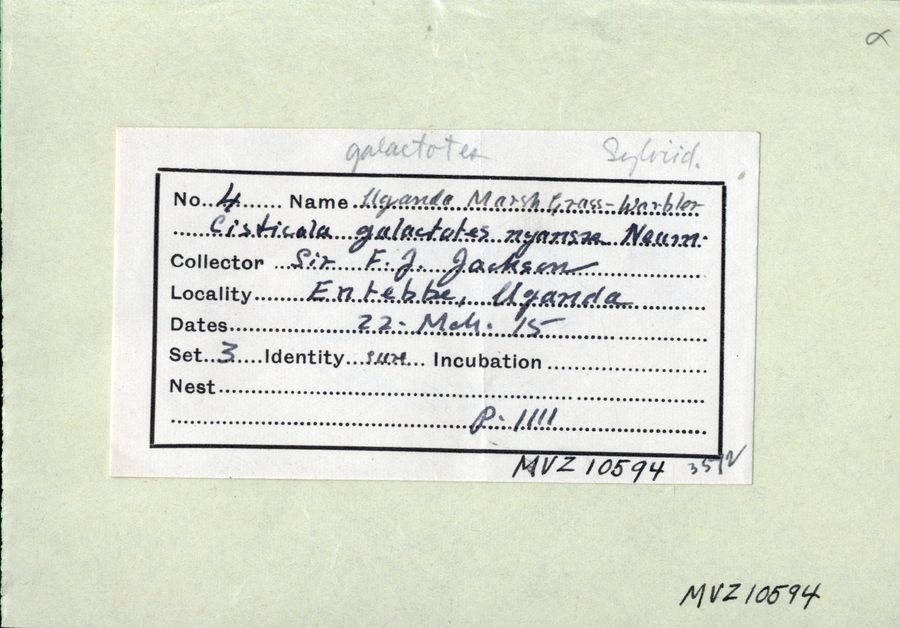 galactotes Sylviid.
No. 4 Name Uganda Marsh Grass-Warbler
Cisticola galactotes nyansae Neum.
Collector Sir F. J. Jackson
Locality Entebbe, Uganda
Dates 22. Mch. 15
Set 3 Identity sure Incubation
Nest
P. 1111
MVZ 10594
MVZ 10594